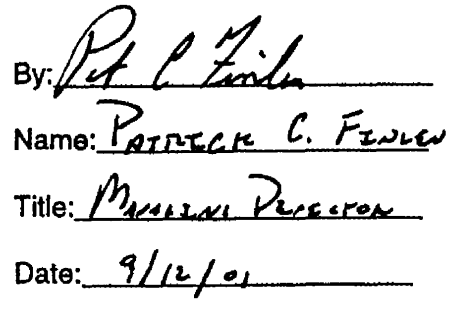 By: Pat C Finlen
Name: PATRICK C. FINLEN
Title: MANAGING DIRECTOR
Date: 9/12/01